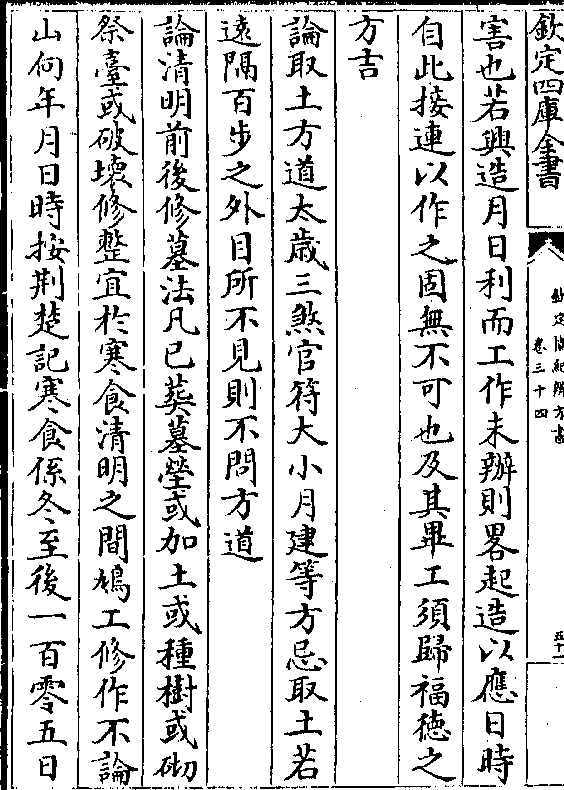 欽定四庫全書
欽定協紀辨方書
卷三十四
五十一
害也若興造月日利而工作未辦則畧起造以應日時
自此接連以作之固無不可也及其畢工須歸福徳之
方吉
論取土方道太歲三煞官符大小月建等方忌取土若
遠隔百步之外目所不見則不問方道
論清明前後修墓法凡已葬墓塋或加土或種樹或砌
祭臺或破壞修整宜於寒食清明之間鳩工修作不論
山向年月日時按荆楚記寒食係冬至後一百零五日